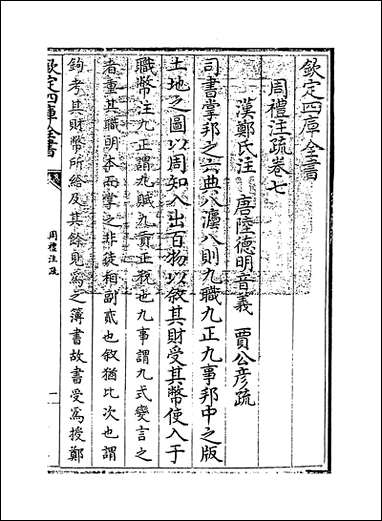 欽定四庫全書
周禮注疏卷七
漢鄭氏注　唐陸德明音義　賈公彦疏
司書掌邦之六典八灋八則九職九正九事邦中之版
土地之圖以周知入出百物以敘其財受其幣使入于
職幣注九正謂九賦九貢正税也九事謂九式變言之
者重其職明本而掌之非徒相副貳也敘猶比次也謂
鉤考其財幣所給及其餘見為之簿書故書受為授鄭
欽定四庫全書
周禮注疏
一